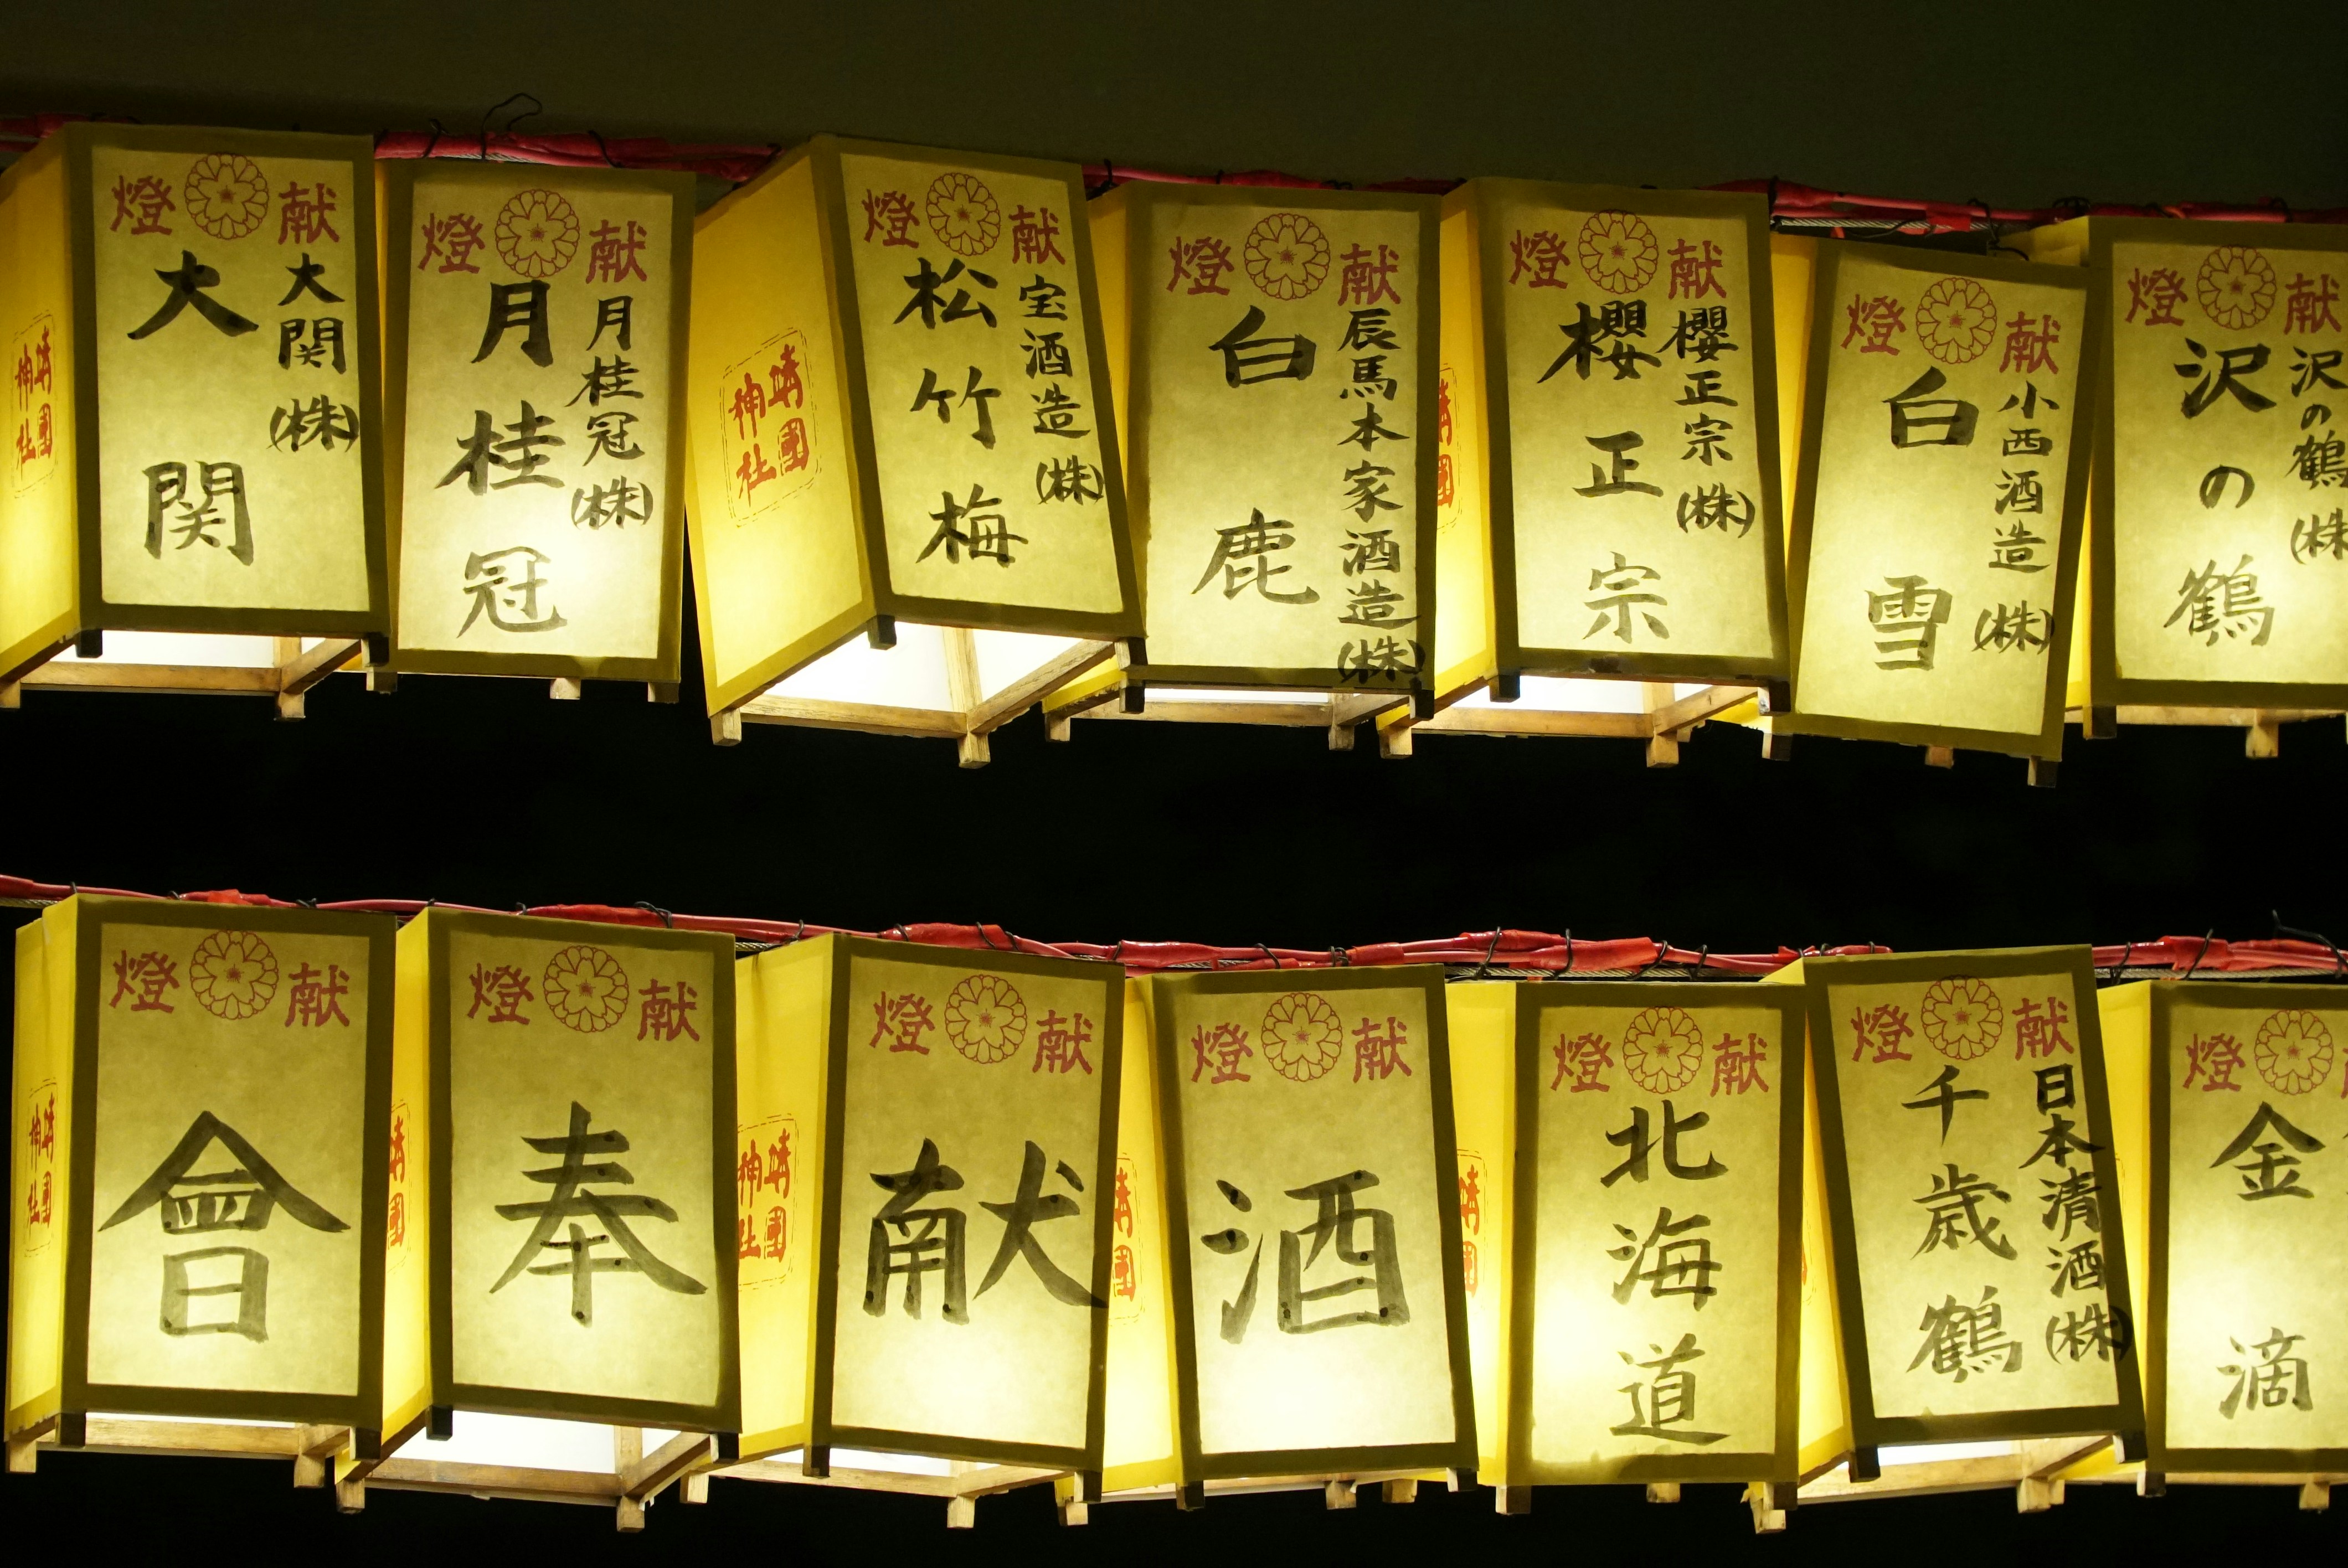 献燈
大関
大関(株)
靖國神社
献燈
月桂冠
月桂冠(株)
献燈
松竹梅
宝酒造(株)
靖國神社
献燈
白鹿
辰馬本家酒造(株)
献燈
櫻正宗
櫻正宗(株)
靖國
献燈
白雪
小西酒造(株)
献燈
沢の鶴
沢の鶴(株
献燈
會
靖國神社
献燈
奉
靖國
献燈
献
靖國神社
献燈
酒
靖國
献燈
北海道
靖國
献燈
千歳鶴
日本清酒(株)
燈
金滴